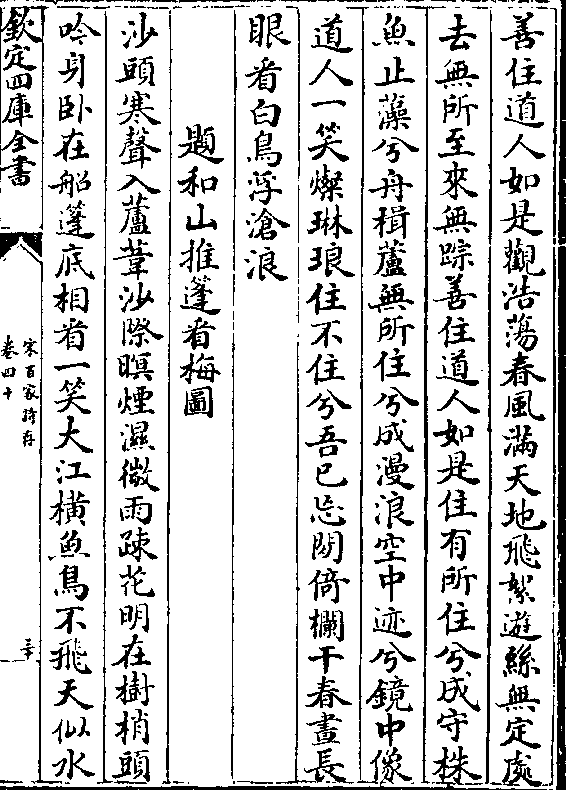 善住道人如是觀浩蕩春風滿天地飛絮遊絲無定處
去無所至來無踪善住道人如是住有所住兮成守株
魚止藻兮舟楫蘆無所住兮成漫浪空中迹兮鏡中像
道人一笑燦琳琅住不住兮吾已忘閉倚欄干春晝長
眼看白鳥浮滄浪
題和山推蓬看梅圖
沙頭寒聲入蘆葦沙際暝煙濕微雨疎花明在樹梢頭
吟身卧在船蓬底相看一笑大江橫魚鳥不飛天似水
欽定四庫全書
宋百家詩存
卷四十